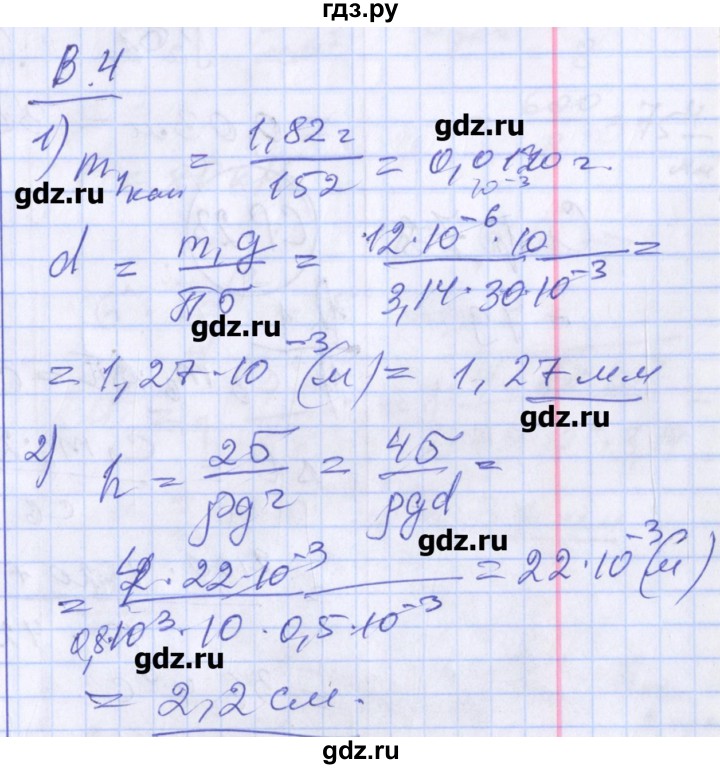 гдз.ру
В.4
1) m₁кап = 1,82 г / 152 = 0,0120 г.
10⁻³
gdz.ru
gdz.ru
d = m₁g / πσ = 12·10⁻⁶·10 / 3,14·30·10⁻³ =
gdz.ru
= 1,27·10⁻³ (м) = 1,27 мм
gdz.ru
2) h = 2σ / ρgr = 4σ / ρgd =
gdz.ru
= 4·22·10⁻³ / 0,8·10³·10·0,5·10⁻³ = 22·10⁻³ (м)
gdz.ru
= 2,2 см.
gdz.ru